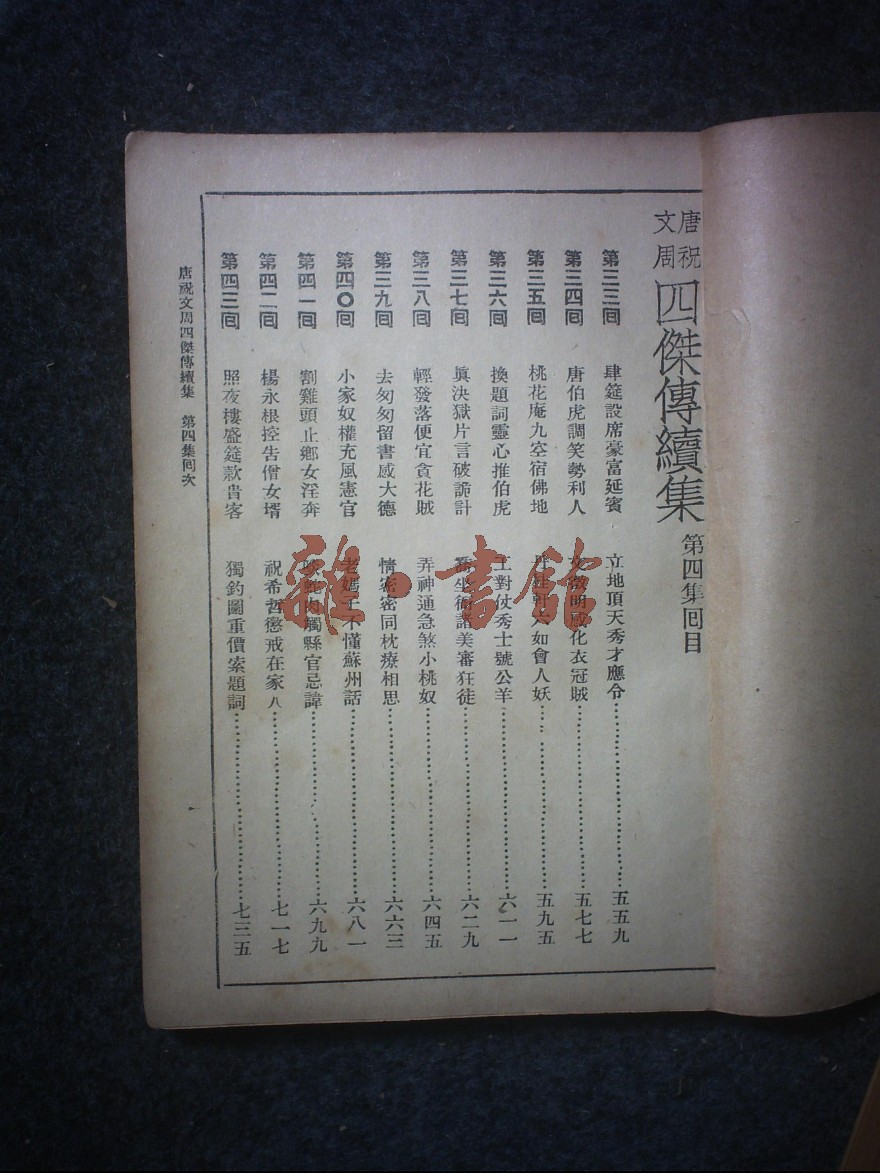 唐祝文周四傑傳續集 第四集回目
第三三回 肆筵設席豪富延賓 立地頂天秀才應令 五五九
第三四回 唐伯虎調笑勢利人 文徵明感化衣冠賊 五七七
第三五回 桃花庵九空宿佛地 如會人妖 五九五
第三六回 換題詞靈心推伯虎 工對仗秀士號公羊 六一一
第三七回 眞決獄片言破詭計 坐衙諸美審狂徒 六二九
第三八回 輕發落便宜貪花賊 弄神通急煞小桃奴 六四五
第三九回 去匆匆留書感大德 情密密同枕療相思 六六三
第四〇回 小家奴權充風憲官 老媽子不懂蘇州話 六八一
第四一回 割雞頭止鄉女淫奔 蛇肉觸縣官忌諱 六九九
第四二回 楊永根控告僧女壻 祝希哲懲戒在家人 七一七
第四三回 照夜樓盛筵款貴客 獨釣圖重價索題詞 七三五
唐祝文周四傑傳續集 第四集回次
雜·書館